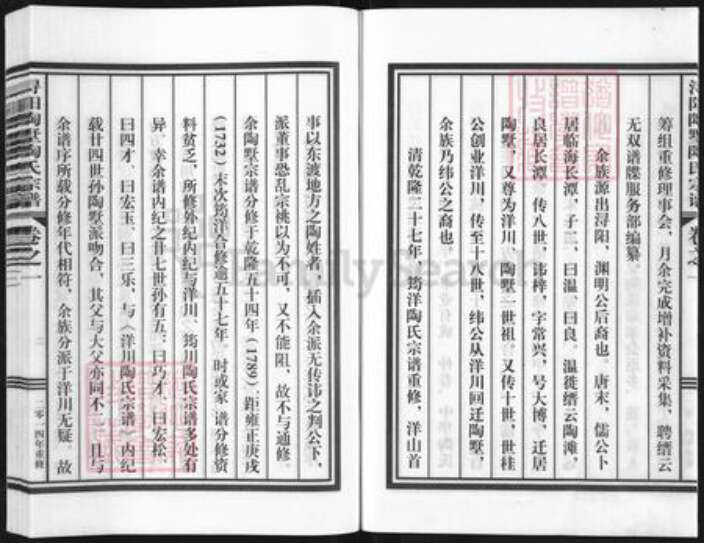 筹组重修理事会，月余完成增补资料采集，聘缙云
无双谱牒服务部编纂。
余族源出浔阳，渊明公后裔也。唐末，儒公卜
居临海长潭，子二，曰温、曰良。温徙缙云陶滩，
良居长潭，传八世，讳梓，字常兴，号大博，迁居
陶墅，又尊为洋川、陶墅一世祖。又传十世，世桂
公创业洋川，传至十八世，纬公从洋川回迁陶墅，
余族乃纬公之裔也。
清乾隆二十七年，筠洋陶氏宗谱重修，洋山首
事以东渡地方之陶姓者，插入余派无传讳之判公下，
派董事恐乱宗祧以为不可，又不能阻，故不与通修。
余陶墅宗谱分修于乾隆五十四年（1789），距雍正庚戌
（1732）末次筠洋合修逾五十七年，时或家谱分修资
料贫乏，所修外纪内纪与洋川、筠川陶氏宗谱多处有
异，幸余谱内纪之廿七世孙有五：曰巧才、曰宏松、
曰四才、曰宏玉、曰三乐，与《洋川陶氏宗谱》内纪
载廿四世孙陶墅派吻合，其父与大父亦同不，且与
余谱序所载分修年代相符，余族分派于洋川无疑。故
浔阳陶墅陶氏宗谱
卷之一
二〇一四年重修
浔阳陶墅陶氏宗谱
卷之一
FamilySearch